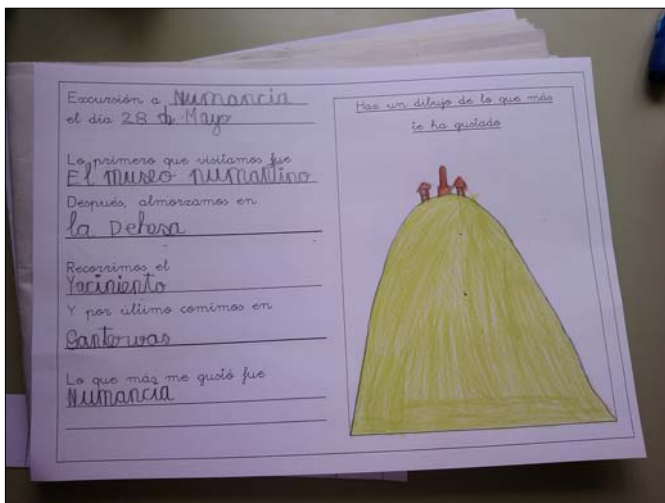 Excursión a Numancia
el día 28 de Mayo
Lo primero que visitamos fue
El museo numantino
Después, almorzamos en
la Dehesa
Recorrimos el
Yaciniento
Y por último comimos en
Canterwas
Lo que más me gustó fue
Numancia
Haz un dibujo de lo que más
te ha gustado